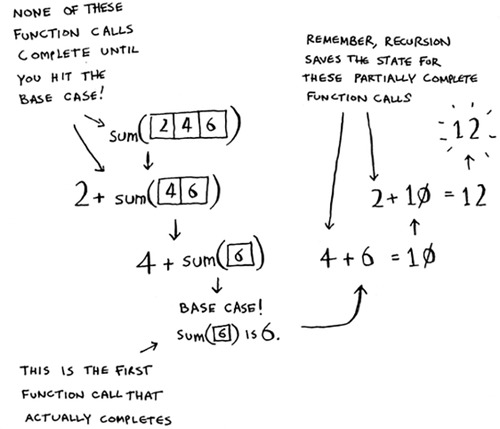 NONE OF THESE
FUNCTION CALLS
COMPLETE UNTIL
YOU HIT THE
BASE CASE!
REMEMBER, RECURSION
SAVES THE STATE FOR
THESE PARTIALLY COMPLETE
FUNCTION CALLS
sum([2 4 6])
2 + sum([4 6])
4 + sum([6])
BASE CASE!
sum([6]) is 6.
THIS IS THE FIRST
FUNCTION CALL THAT
ACTUALLY COMPLETES
4 + 6 = 10
2 + 10 = 12
12